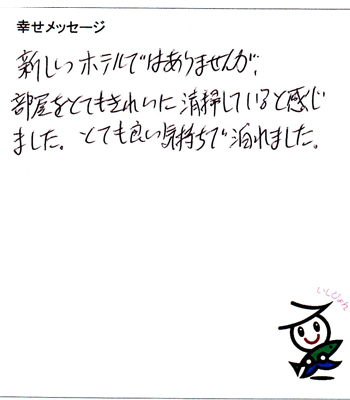 幸せメッセージ
新しいホテルではありませんが、
部屋をとてもきれいに清掃していると感じ
ました。とても良い気持ちで泊れました。
いしぴょん